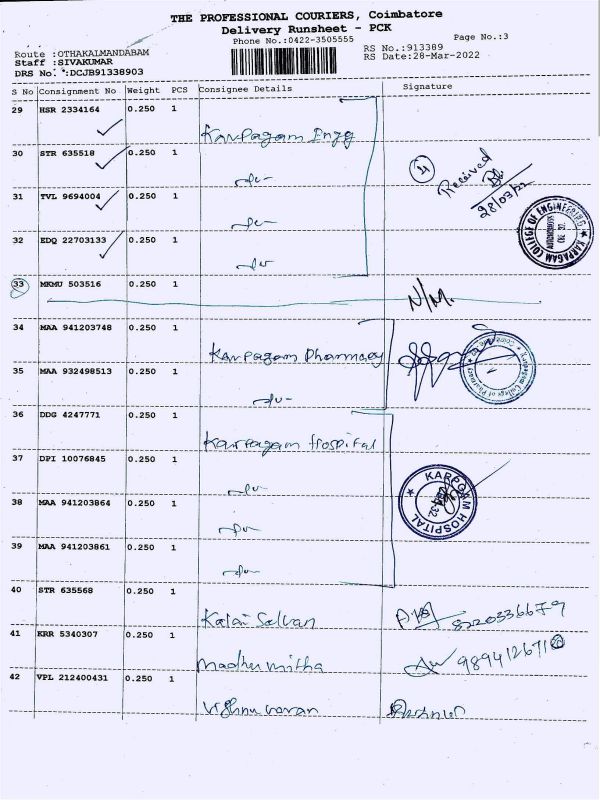 THE PROFESSIONAL COURIERS, Coimbatore
Delivery Runsheet - PCK
Phone No.:0422-3505555
Page No.:3
Route :OTHAKALMANDABAM
Staff :SIVAKUMAR
DRS No. :DCJB91338903
RS No.:913389
RS Date:28-Mar-2022
S No Consignment No Weight PCS Consignee Details Signature
29 HSR 2334164 0.250 1
Karpagam Engg
30 STR 635518 0.250 1
-do-
31 TVL 9694004 0.250 1
-do-
32 EDQ 22703133 0.250 1
-do-
4 Received
28/03/22
KARPAGAM COLLEGE OF ENGINEERING
AUTONOMOUS
CBE 32
33 MKMU 503516 0.250 1
N/M.
34 MAA 941203748 0.250 1
Karpagam Pharmacy
Karpagam College of Pharmacy
35 MAA 932498513 0.250 1
-do-
36 DDG 4247771 0.250 1
Karpagam Hospital
37 DPI 10076845 0.250 1
-do-
38 MAA 941203864 0.250 1
-do-
KARPGAM HOSPITAL
39 MAA 941203861 0.250 1
-do-
40 STR 635568 0.250 1
Kalai Selvan 8220336679
41 KRR 5340307 0.250 1
Madhu mitha
42 VPL 212400431 0.250 1
Vishnu varan